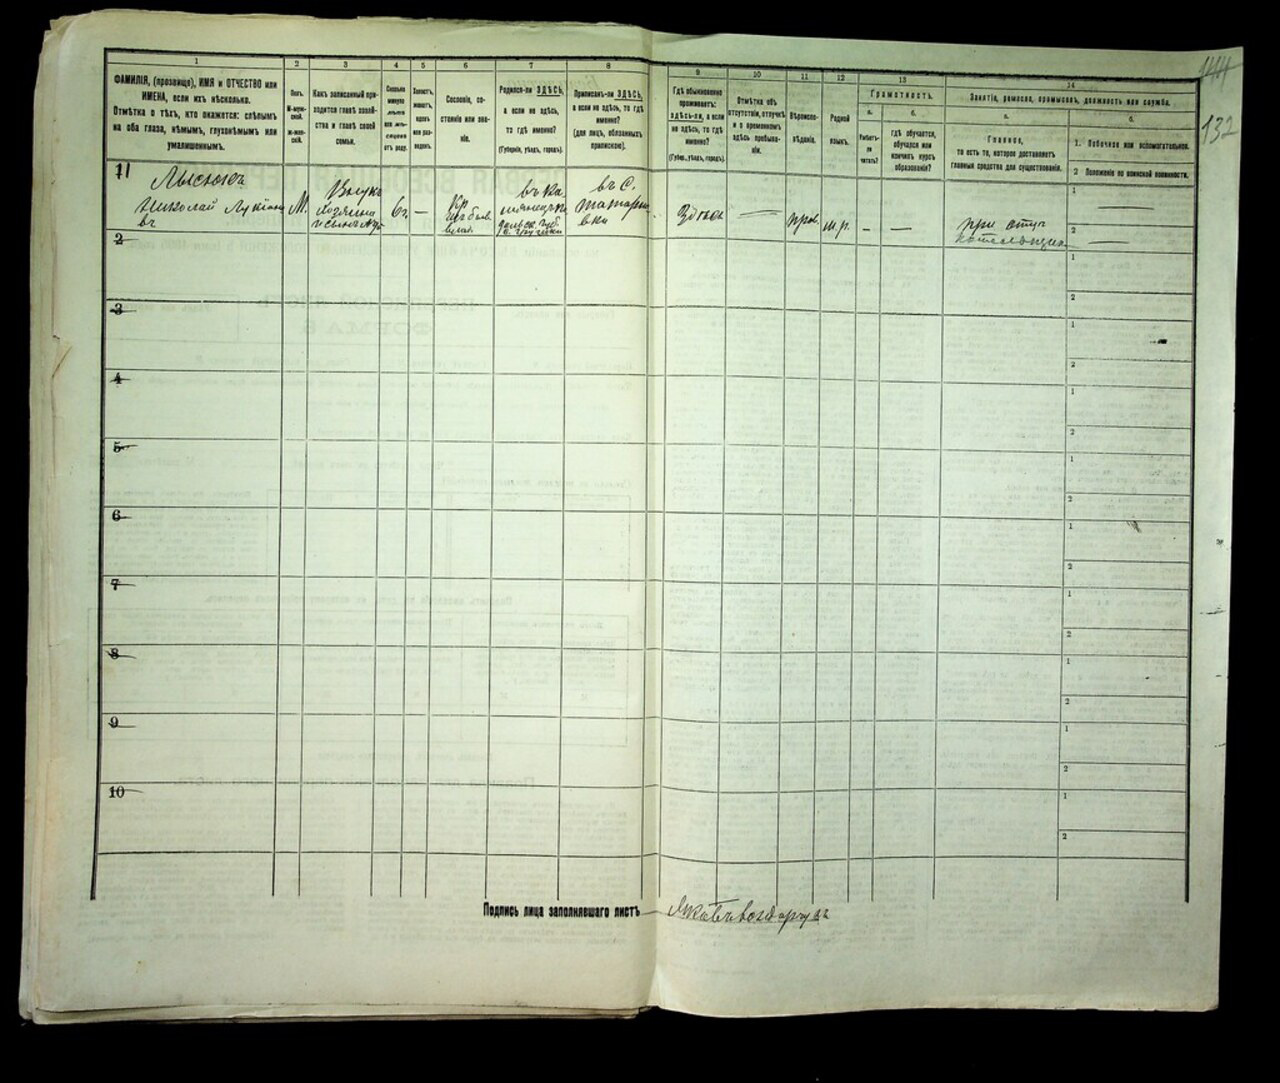 144
132
1
2
3
4
5
6
7
8
9
10
11
12
13
14
ФАМИЛІЯ, (прозвище), ИМЯ и ОТЧЕСТВО или
ИМЕНА, если ихъ нѣсколько.
Отмѣтка о тѣхъ, кто окажется: слѣпымъ
на оба глаза, нѣмымъ, глухонѣмымъ или
умалишеннымъ.
Полъ.
М-муж-
ской.
Ж-жен-
скій.
Какъ записанный при-
ходится главѣ хозяй-
ства и главѣ своей
семьи.
Сколько
минуло
лѣтъ
или мѣ-
сяцевъ
отъ роду.
Холостъ,
женатъ,
вдовъ
или раз-
веденъ.
Сословіе, со-
стояніе или зва-
ніе.
Родился-ли ЗДѢСЬ,
а если не здѣсь,
то гдѣ именно?
(Губернія, уѣздъ, городъ).
Приписанъ-ли ЗДѢСЬ,
а если не здѣсь, то гдѣ
именно?
(для лицъ, обязанныхъ
припискою).
Гдѣ обыкновенно
проживаетъ:
здѣсь-ли, а если
не здѣсь, то гдѣ
именно?
(Губер., уѣздъ, городъ).
Отмѣтка объ
отсутствіи, отлучкѣ
и о временномъ
здѣсь пребыва-
ніи.
Вѣроиспо-
вѣданіе.
Родной
языкъ.
Грамотность.
а.
б.
Умѣетъ-
ли
читать?
гдѣ обучается,
обучался или
кончилъ курсъ
образованія?
Занятіе, ремесло, промыселъ, должность или служба.
а.
б.
Главное,
то есть то, которое доставляетъ
главныя средства для существованія.
1. Побочное или вспомогательное.
2. Положеніе по воинской повинности.
11
Лысюкъ
Николай Лукіяно
въ
М.
Внукъ
хозяина
6 г.
—
Кр.
въ Ка
въ С.
Татарис
вки
Здѣсь
—
прав.
м.р.
–
—
при отцѣ
1
2
2
1
2
3
1
2
4
1
2
5
1
2
6
1
2
7
1
2
8
1
2
9
1
2
10
1
2
Подпись лица заполнявшаго листъ